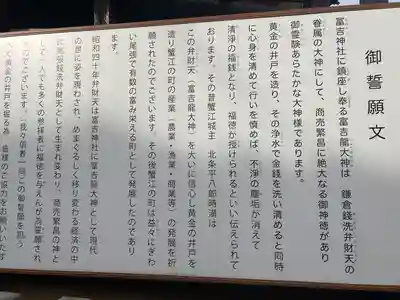 御誓願文
冨吉神社に鎮座し奉る冨吉龍大神は 鎌倉銭洗弁財天の
眷属の大神にして、商売繁昌に絶大なる御神徳があり
御霊験あらたかな大神様であります。
黄金の井戸を造り、その浄水で金銭を洗い清めると同時
に心身を清めて行いを慎めば、不浄の塵垢が消えて
清浄の福銭となり、福徳が授けられるといい伝えられて
おります。その昔蟹江城主 北条平八郎時満は
この弁財天（冨吉龍大神）を大いに信心し黄金の井戸を
造り蟹江の町の産業（農業・漁業 商業等）の発展を祈
願されたのでございます。その後蟹江の町は益々にぎわ
い尾張で有数の富み栄える町として発展したのであり
ます。
昭和四十年弁財天は冨吉神社に冨吉龍大神として現代
の世に姿を現わされ、めまぐるしく移り変わる経済の中
尾張銭洗弁財天として生まれ変わり、商売繁昌の神と
して一人でも多くの参拝者に福徳を与えんが為
のでございます。我々信者一同この御誓願を
黄金の井戸を掘る為 皆様のご協力をお願いいたす